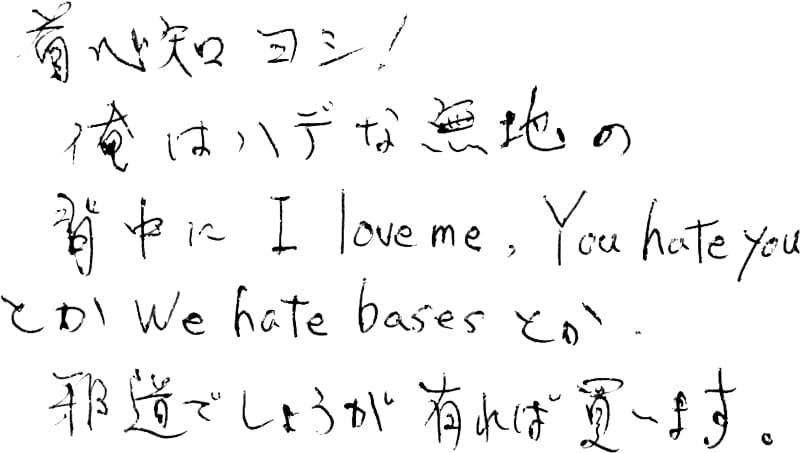 首心知ヨシ!
俺はハデな無地の
背中に I love me, You hate you
とか We hate bases とか.
邪道でしょうが有れば買います。